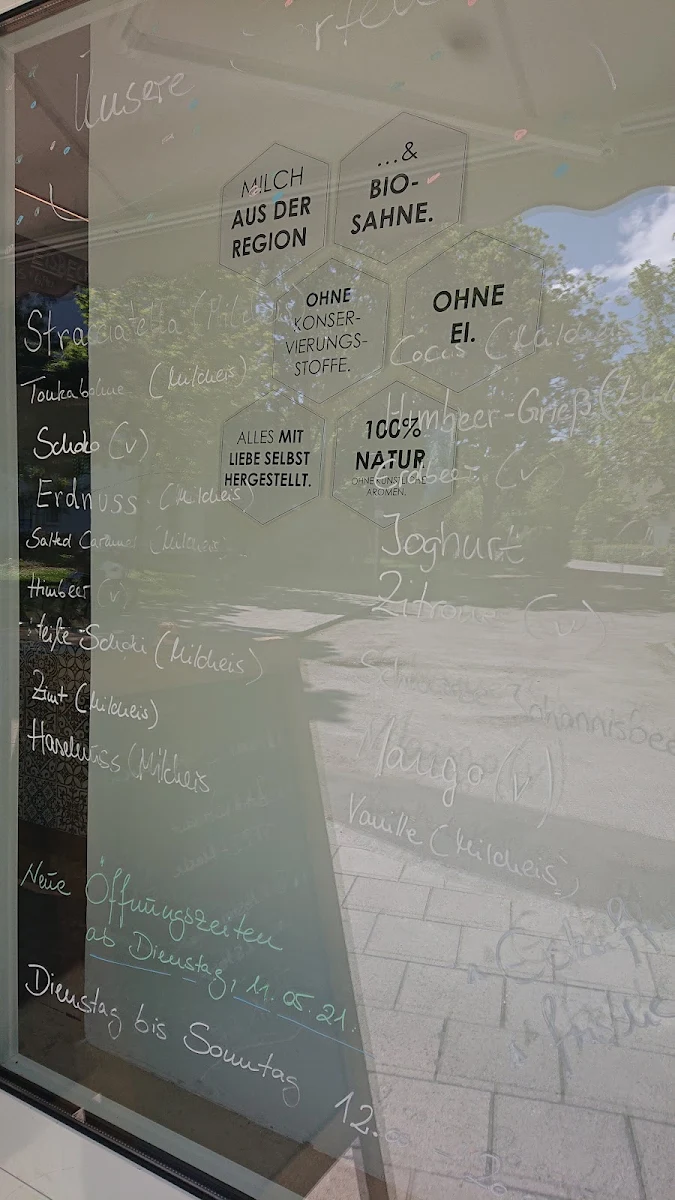 Unsere
MILCH
AUS DER
REGION
...&
BIO-
SAHNE.
OHNE
KONSER-
VIERUNGS-
STOFFE.
OHNE
EI.
ALLES MIT
LIEBE SELBST
HERGESTELLT.
100%
NATUR
OHNE KÜNSTLICHE
AROMEN.
Stracciatella
Tonkabohne (Milcheis)
Schoko (v)
Erdnuss (Milcheis)
Salted Caramel (Milcheis)
Himbeer (v)
Schoki (Milcheis)
Zimt (Milcheis)
Haselnuss (Milcheis
Cocos (Milcheis
Himbeer-Grieß
Erdbeer (v
Joghurt
Zitrone (v)
Johannisbee
Mango (v)
Vanille (Milcheis)
Neue Öffnungszeiten
ab Dienstag, 11.05.21:
Dienstag bis Sonntag
12.